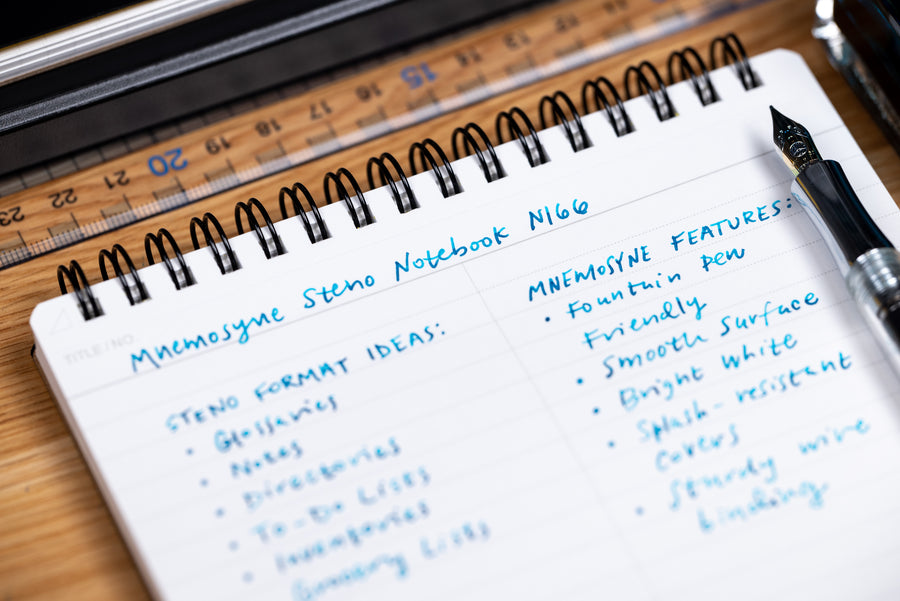 23 22 21 20 19 18 17 16 15 14 13 12
TITLE/NO.
Mnemosyne Steno Notebook N166
STENO FORMAT IDEAS:
• Glossaries
• Notes
• Directories
• To-Do Lists
• Inventories
• Grocery Lists
MNEMOSYNE FEATURES:
• Fountain pen
Friendly
• Smooth Surface
• Bright White
• Splash-resistant
covers
• Sturdy wire
binding